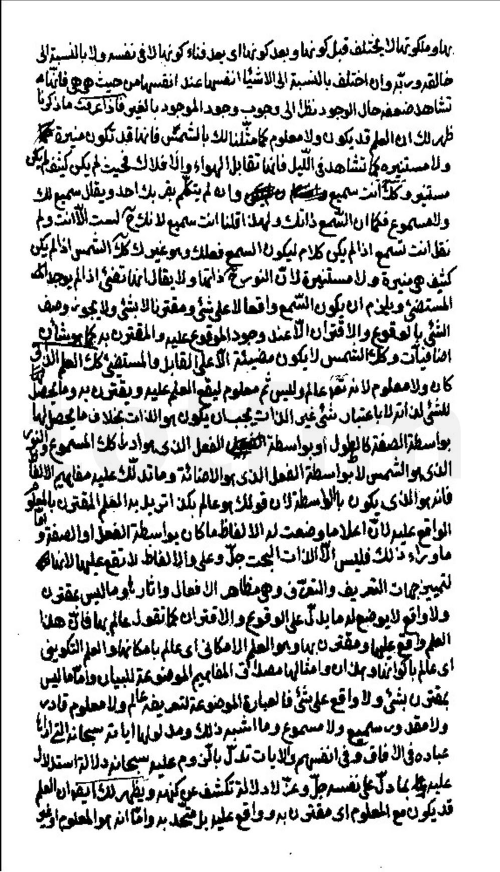 بها وملكوتها لا يختلف قبل كونها وبعد كونها اى بعد فناء كونها لا فى نفسه ولا بالنسبة الى
خالقه وربه وان اختلف بالنسبة الى الاشياء انفسها عند انفسها من حيث هى هى فانها
تشاهد ضعفه حال الوجود نظرا الى وجوب وجود الموجود بالغير فاذا عرفت ما ذكرنا
ظهر لك ان العلم قد يكون ولا معلوم كما مثلنا لك بالشمس فانها قد تكون منيرة
ولا مستنير كما تشاهد فى الليل فانها تقابل الهواء والافلاك فحيث لم يكن كثيف لم يكن
مستنير وكك انت سميع وان لم يتكلم بقربك احد ويقال سميع لك
ولا مسموع فكما ان السمع ذاتك ولهذا قلنا انت سميع لانك ح لست الا انت ولم
نقل انت تسمع اذ لم يكن كلام ليكون السمع فعلك وهو غيرك كك الشمس اذا لم يكن
كثيف هى منيرة ولا مستنيرة لان النور ح ذاتها ولا يقال انها تضئ اذ لم يوجد
المستضئ ويلزم ان يكون السمع واقعا لا على شئ ومقترنا لا بشئ ولا يجوز وصف
الشئ بالوقوع والاقتران الا عند وجود الموقوع عليه والمقترن به كما هو شان
اضافيات وكك الشمس لا يكون مضيئة الا على القابل والمستضئ كك العلم الذى
كان ولا معلوم لانه تعالى عالم وليس ثم معلوم ليقع العلم عليه ويقترن به وما يحصل
للشئ لذاته لا باعتبار شئ غير الذات يجب ان يكون هو الذات بخلاف ما يحصل لها
بواسطة الصفة كالطول او بواسطة الفعل الذى هو ادراك المسموع والنور
الذى هو الشمس لا بواسطة الفعل الذى هو الاضائة وما تدلك عليه مفاهيم الالفاظ
فانه هو الذى يكون بالواسطة لان قولك هو عالم بكذا تريد به العلم المقترن بالمعلوم
الواقع عليه لان اعلا ما وضعت له الالفاظ ما كان بواسطة الفعل او الصفة واما
ما وراء ذلك فليس الا الذات البحت جل وعلى والالفاظ لا تقع عليها لانها
لتمييز جهات التعريف والتعرف وهى مظاهر الافعال واثارها وما ليس بمقترن
ولا واقع لا يوضع له ما يدل على الوقوع والاقتران كما نقول عالم بها فان هذا
العلم واقع عليها ومقترن بها وهو العلم الامكانى اى عالم بامكانها والعلم التكوينى
اى عالم باكوانها وهذان وامثالها مصداق المفاهيم الموضوعة للبيان واما ما ليس
بمقترن بشئ ولا واقع على شئ فالعبارة الموضوعة لتعريفه عالم ولا معلوم قادر
ولا مقدور سميع ولا مسموع وما اشبه ذلك ومدلولها اياته سبحانه التى اراها
عباده فى الافاق وفى انفسهم والايات تدل بالزوم عليه سبحانه دلالة استدلال
عليه بما دل على نفسه جل وعز لا دلالة تكشف عن كنهه ويظهر لك ايضا ان العلم
قد يكون مع المعلوم اى مقترن به وواقع عليه بل متحد به واما انه هو المعلوم او غير